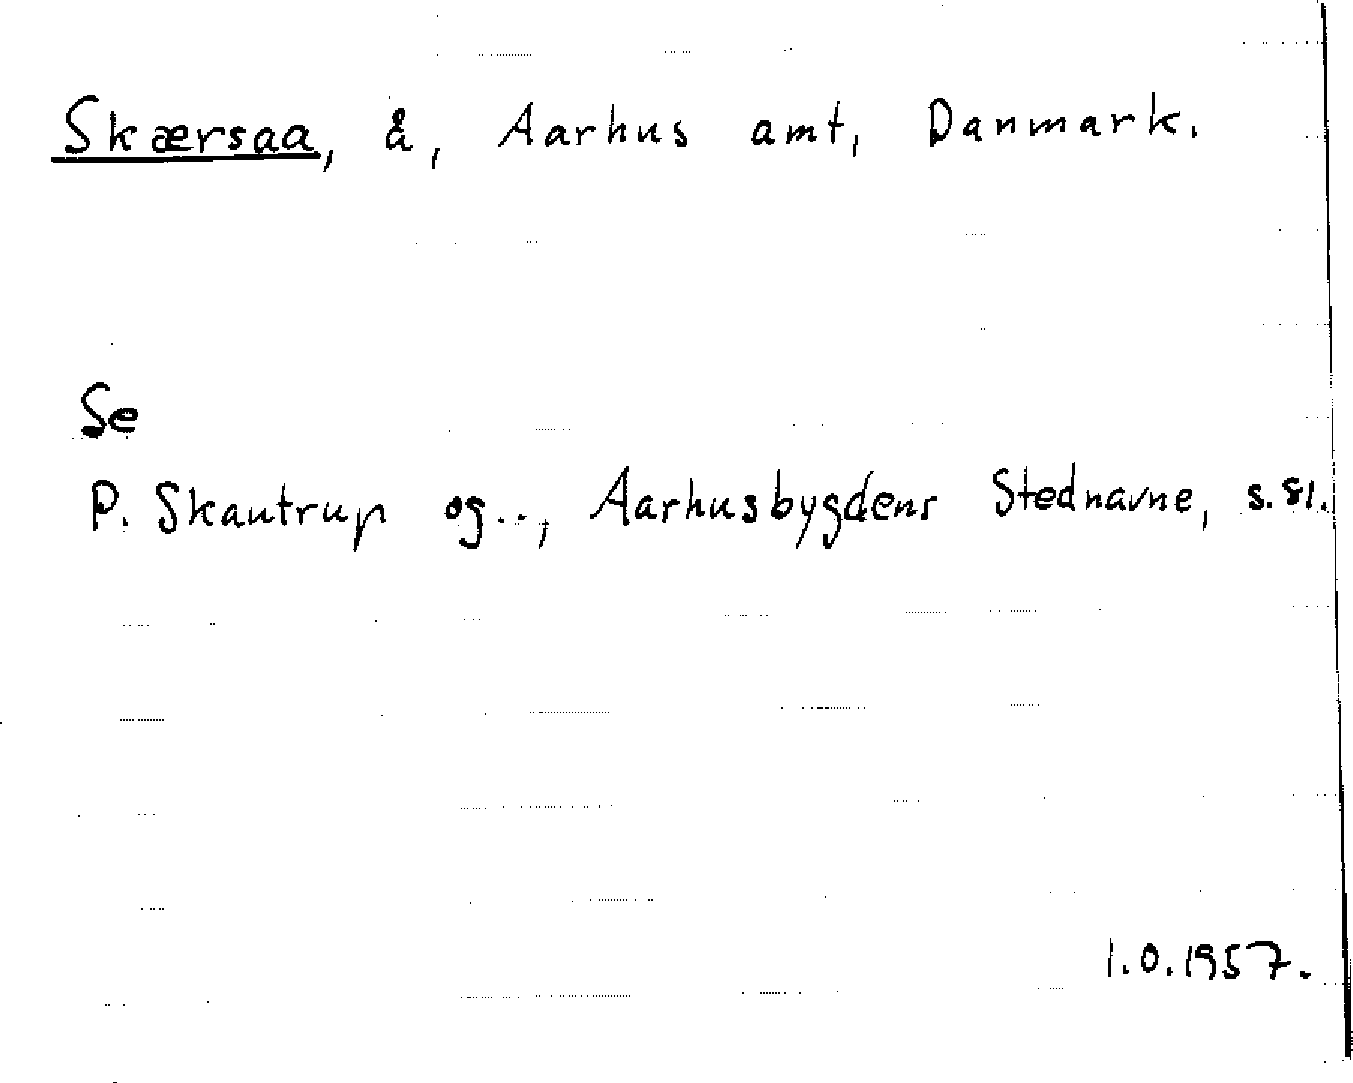 Skærsaa, å, Aarhus amt, Danmark.
Se
P. Skautrup og.., Aarhusbygdens Stednavne, s. 81.
I.O. 1957.